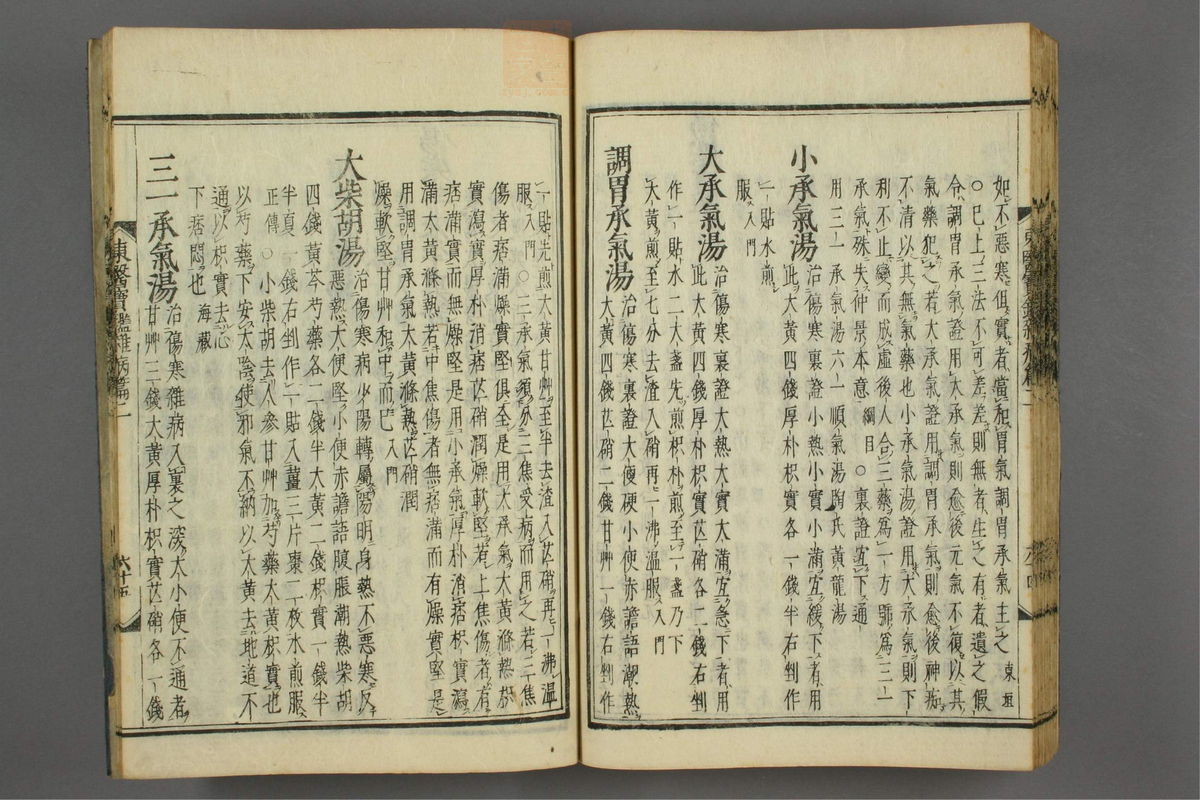 如不惡寒但實者當和胃氣調胃承氣主之東垣
○已上三法不可差差則無者生之有者遺之假
令調胃承氣證用大承氣則愈後元氣不復以其
氣藥犯之若大承氣證用調胃承氣則愈後神痴
不清以其無氣藥也小承氣湯證用大承氣則下
利不止變而成虛後人合三藥爲一方號爲三一
承氣殊失仲景本意綱目○裏證宜下通
用三一承氣湯六一順氣湯陶氏黃龍湯
小承氣湯治傷寒裏證小熱小實小滿宜緩下者用
此大黃四錢厚朴枳實各一錢半右剉作
一貼水煎
服入門
大承氣湯治傷寒裏證大熱大實大滿宜急下者用
此大黃四錢厚朴枳實芒硝各二錢右剉
作一貼水二大盞先煎枳朴煎至一盞乃下
大黃煎至七分去渣入硝再一沸溫服入門
調胃承氣湯治傷寒裏證大便硬小便赤譫語潮熱
大黃四錢芒硝二錢甘艸一錢右剉作
一貼先煎大黃甘艸至半去渣入芒硝再一沸溫
服入門○三承氣須分三焦受病而用之若三焦
傷者痞滿燥實堅俱全是用大承氣大黃滌熱枳
實瀉實厚朴消痞芒硝潤燥軟堅若上焦傷者有
痞滿實而無燥堅是用小承氣厚朴消痞枳實瀉
滿大黃滌熱若中焦傷者無痞滿而有燥實堅是
用調胃承氣大黃滌熱芒硝潤
燥軟堅甘艸和中而已入門
大柴胡湯治傷寒病少陽轉屬陽明身熱不惡寒反
惡熱大便堅小便赤譫語腹脹潮熱柴胡
四錢黃芩芍藥各二錢半大黃二錢枳實一錢半
半夏一錢右剉作一貼入薑三片棗二枚水煎服
正傳○小柴胡去人參甘艸加芍藥大黃枳實也
以芍藥下安太陰使邪氣不納以大黃去地道不
通以枳實去心
下痞悶也海藏
三一承氣湯治傷寒雜病入裏之深大小便不通者
甘艸三錢大黃厚朴枳實芒硝各一錢
東醫寶鑑雜病篇二
六十五